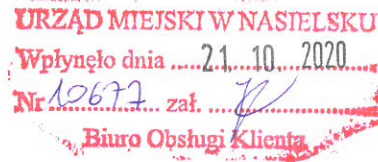 URZĄD MIEJSKI W NASIELSKU
Wpłynęło dnia ..... 21. 10. 2020
Nr 10677 zał.
Biuro Obsługi Klienta